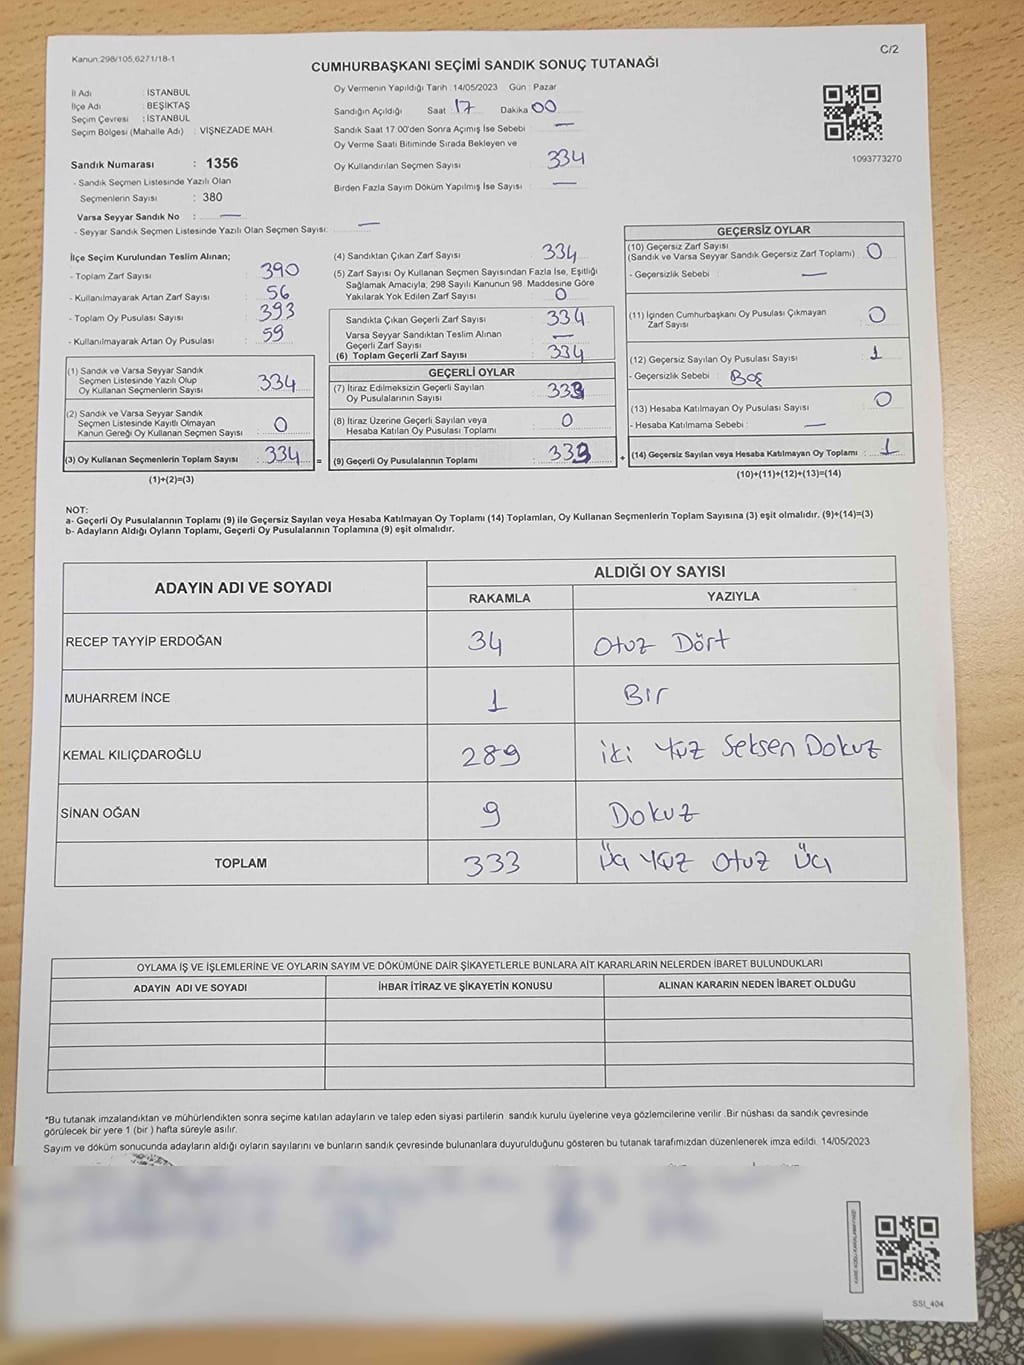 Kanun:298/105,6271/18-1
C/2
CUMHURBAŞKANI SEÇİMİ SANDIK SONUÇ TUTANAĞI
İl Adı : İSTANBUL
İlçe Adı : BEŞİKTAŞ
Seçim Çevresi : İSTANBUL
Seçim Bölgesi (Mahalle Adı) : VİŞNEZADE MAH.
Sandık Numarası : 1356
- Sandık Seçmen Listesinde Yazılı Olan
Seçmenlerin Sayısı : 380
Varsa Seyyar Sandık No : —
- Seyyar Sandık Seçmen Listesinde Yazılı Olan Seçmen Sayısı: —
Oy Vermenin Yapıldığı Tarih : 14/05/2023 Gün : Pazar
Sandığın Açıldığı Saat 17 Dakika 00
Sandık Saat 17 00'den Sonra Açımış İse Sebebi —
Oy Verme Saati Bitiminde Sırada Bekleyen ve
Oy Kullandırılan Seçmen Sayısı 334
Birden Fazla Sayım Döküm Yapılmış İse Sayısı : —
1093773270
İlçe Seçim Kurulundan Teslim Alınan;
- Toplam Zarf Sayısı : 390
- Kullanılmayarak Artan Zarf Sayısı : 56
- Toplam Oy Pusulası Sayısı : 393
- Kullanılmayarak Artan Oy Pusulası : 59
(1) Sandık ve Varsa Seyyar Sandık
Seçmen Listesinde Yazılı Olup
Oy Kullanan Seçmenlerin Sayısı : 334
(2) Sandık ve Varsa Seyyar Sandık
Seçmen Listesinde Kayıtlı Olmayan
Kanun Gereği Oy Kullanan Seçmen Sayısı : 0
(3) Oy Kullanan Seçmenlerin Toplam Sayısı : 334 =
(1)+(2)=(3)
(4) Sandıktan Çıkan Zarf Sayısı : 334
(5) Zarf Sayısı Oy Kullanan Seçmen Sayısından Fazla İse, Eşitliği
Sağlamak Amacıyla; 298 Sayılı Kanunun 98. Maddesine Göre
Yakılarak Yok Edilen Zarf Sayısı : 0
Sandıkta Çıkan Geçerli Zarf Sayısı : 334
Varsa Seyyar Sandıktan Teslim Alınan
Geçerli Zarf Sayısı : —
(6) Toplam Geçerli Zarf Sayısı : 334
GEÇERLİ OYLAR
(7) İtiraz Edilmeksizin Geçerli Sayılan
Oy Pusulalarının Sayısı : 333
(8) İtiraz Üzerine Geçerli Sayılan veya
Hesaba Katılan Oy Pusulası Toplamı : 0
(9) Geçerli Oy Pusulalarının Toplamı : 333 +
GEÇERSİZ OYLAR
(10) Geçersiz Zarf Sayısı
(Sandık ve Varsa Seyyar Sandık Geçersiz Zarf Toplamı) : 0
- Geçersizlik Sebebi : —
(11) İçinden Cumhurbaşkanı Oy Pusulası Çıkmayan
Zarf Sayısı : 0
(12) Geçersiz Sayılan Oy Pusulası Sayısı : 1
- Geçersizlik Sebebi : Boş
(13) Hesaba Katılmayan Oy Pusulası Sayısı : 0
- Hesaba Katılmama Sebebi : —
(14) Geçersiz Sayılan veya Hesaba Katılmayan Oy Toplamı : 1
(10)+(11)+(12)+(13)=(14)
NOT:
a- Geçerli Oy Pusulalarının Toplamı (9) ile Geçersiz Sayılan veya Hesaba Katılmayan Oy Toplamı (14) Toplamları, Oy Kullanan Seçmenlerin Toplam Sayısına (3) eşit olmalıdır. (9)+(14)=(3)
b- Adayların Aldığı Oyların Toplamı, Geçerli Oy Pusulalarının Toplamına (9) eşit olmalıdır.
ADAYIN ADI VE SOYADI
ALDIĞI OY SAYISI
RAKAMLA YAZIYLA
RECEP TAYYİP ERDOĞAN 34 Otuz Dört
MUHARREM İNCE 1 Bir
KEMAL KILIÇDAROĞLU 289 İki Yüz Seksen Dokuz
SİNAN OĞAN 9 Dokuz
TOPLAM 333 Üç Yüz Otuz Üç
OYLAMA İŞ VE İŞLEMLERİNE VE OYLARIN SAYIM VE DÖKÜMÜNE DAİR ŞİKAYETLERLE BUNLARA AİT KARARLARIN NELERDEN İBARET BULUNDUKLARI
ADAYIN ADI VE SOYADI İHBAR İTİRAZ VE ŞİKAYETİN KONUSU ALINAN KARARIN NEDEN İBARET OLDUĞU
*Bu tutanak imzalandıktan ve mühürlendikten sonra seçime katılan adayların ve talep eden siyasi partilerin sandık kurulu üyelerine veya gözlemcilerine verilir. Bir nüshası da sandık çevresinde
görülecek bir yere 1 (bir) hafta süreyle asılır.
Sayım ve döküm sonucunda adayların aldığı oyların sayılarını ve bunların sandık çevresinde bulunanlara duyurulduğunu gösteren bu tutanak tarafımızdan düzenlenerek imza edildi. 14/05/2023
SSI_404